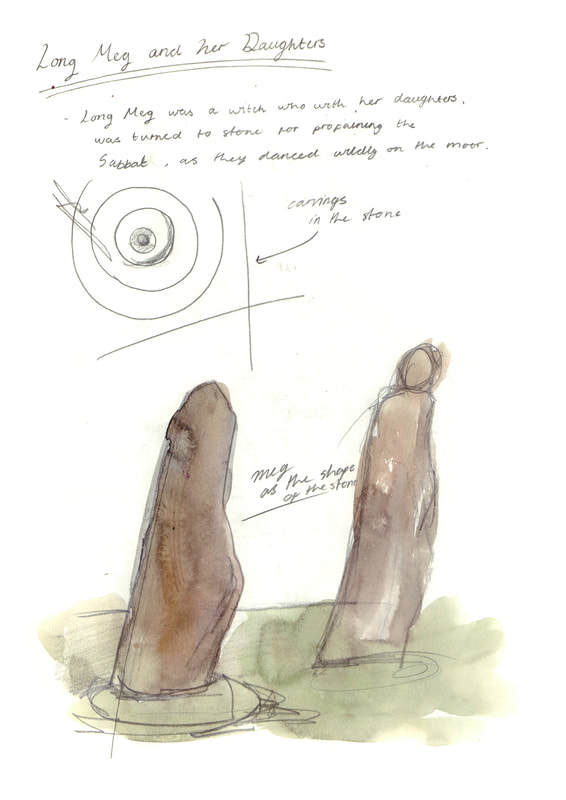 Long Meg and her Daughters
- Long Meg was a witch who with her daughters,
was turned to stone for profaining the
Sabbat, as they danced wildly on the moor.
carvings
in the stone
meg
as the shape
of the stone